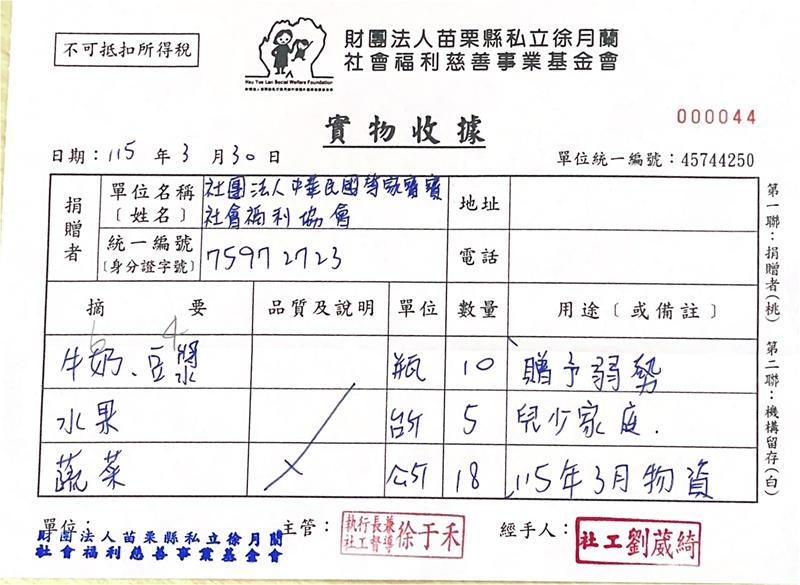 不可抵扣所得稅
Hsu Yue Lan Social Welfare Foundation
財團法人苗栗縣私立徐月蘭
社會福利慈善事業基金會
000044
實物收據
日期：115 年 3 月 30 日
單位統一編號：45744250
捐贈者
單位名稱〔姓名〕 社團法人中華民國等家寶寶社會福利協會
地址
統一編號〔身分證字號〕 75972723
電話
摘要 品質及說明 單位 數量 用途〔或備註〕
6 4
牛奶、豆漿 瓶 10 贈予弱勢
水果 台斤 5 兒少家庭.
蔬菜 公斤 18 115年3月物資
第一聯：捐贈者(桃) 第二聯：機構留存(白)
單位：
財團法人苗栗縣私立徐月蘭
社會福利慈善事業基金會
主管：
執行長兼
社工督導 徐于禾
經手人：
社工劉葳綺